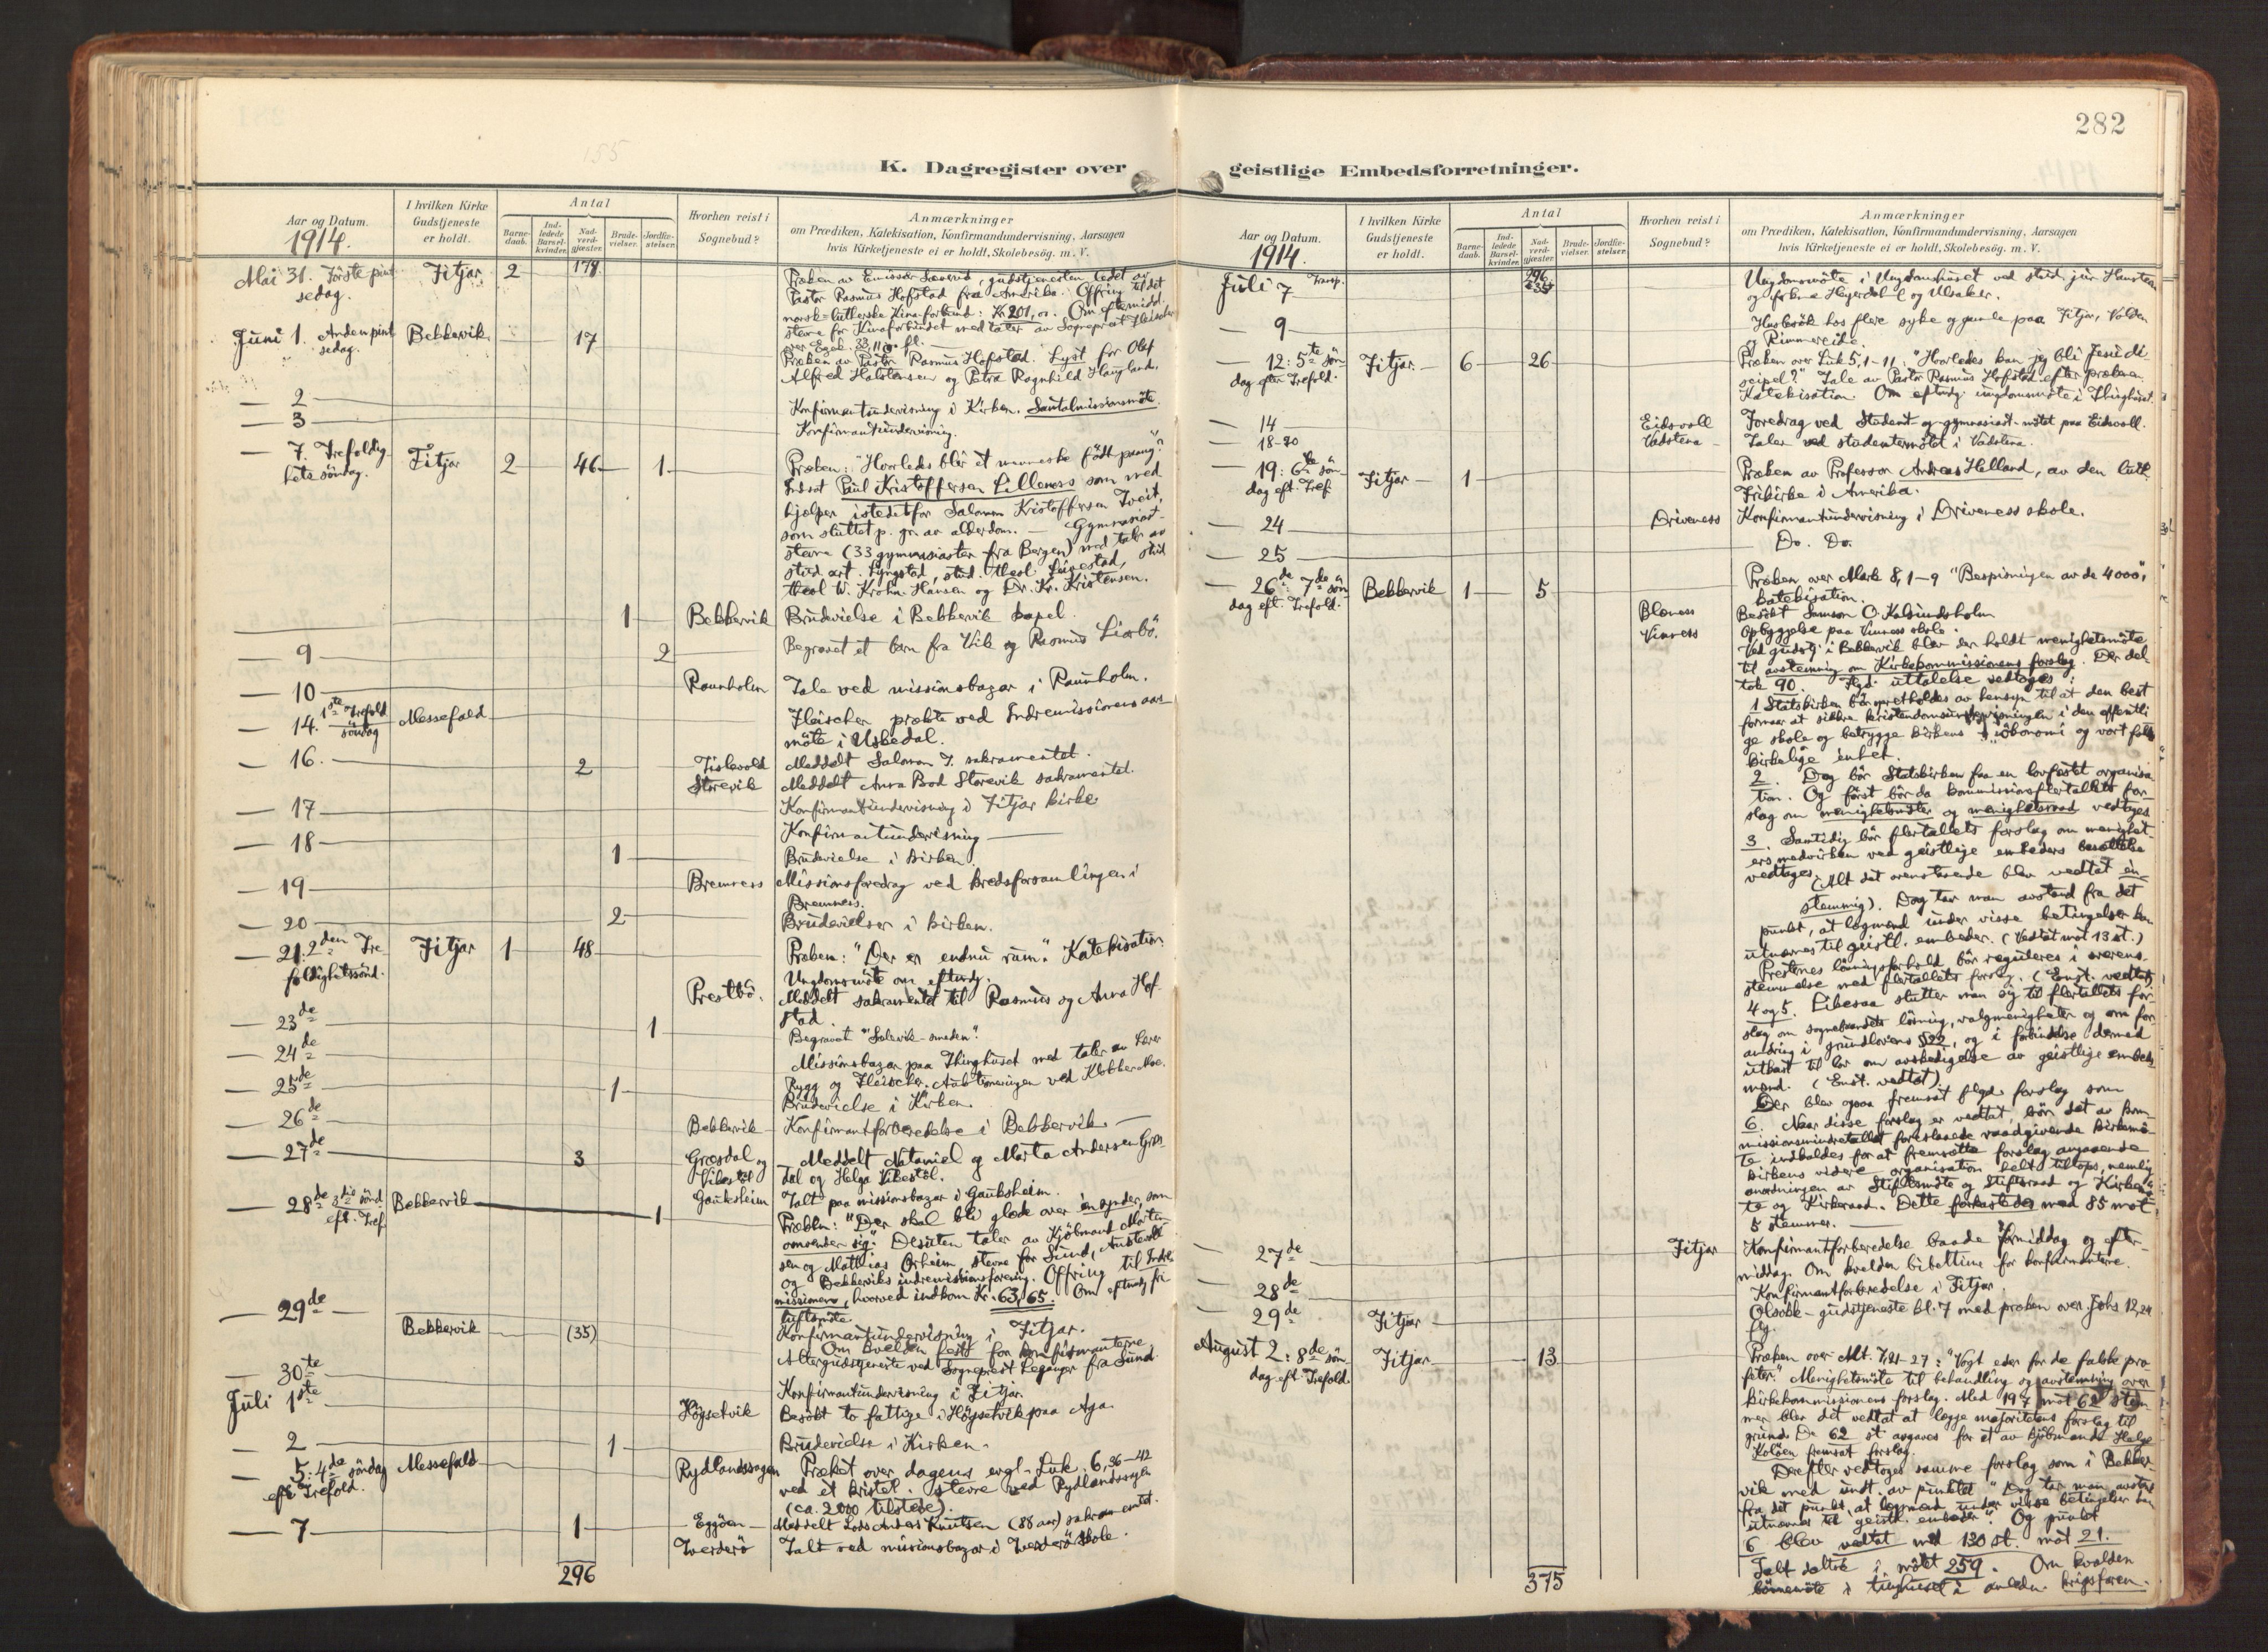 282
K. Dagregister over geistlige Embedsforretninger.
Aar og Datum.
1914.
I hvilken Kirke
Gudstjeneste
er holdt.
Antal
Barne-
daab.
Ind-
ledede
Barsel-
kvinder.
Nad-
verd-
gjæster.
Brude-
vielser.
Jordfæ-
stelser.
Hvorhen reist i
Sognebud?
Anmærkninger
om Prædiken, Katekisation, Konfirmandundervisning, Aarsagen
hvis Kirketjeneste ei er holdt, Skolebesøg. m. V.
Mai 31. Første pint
sedag. Fitjar 2 178
Præken av Emissær, gudstjenesten ledet av
Pastor Rasmus Hofstad fra Amerika. Offring til det
norsk-lutherske Kina-forbund: Kr 201,00. Om eftermidd.
stevne for Kinaforbundet med taler av Sogneprest Fleischer
over Ezek. 33, 11 o. fl.
Juni 1. Anden pint
sedag. Bekkervik 17
Præken av Pastor Rasmus Hofstad. Lyst for Olaf
Alfred Halstensen og Petra Ragnhild Haugland.
— 2 Konfirmantundervisning i Kirken. Santalmissionsmøte.
— 3 Konfirmantundervisning.
— 7. Trefoldig
hets søndag. Fitjar 2 46 1
Præken: "Hvorledes blir et menneske født paany?"
Indsat Paul Kristoffersen Lilleness som med
hjælper istedetfor Salomon Kristoffersen Tveit,
som sluttet p. gr. av alderdom. — Gymnasiast-
stevne (33 gymnasiaster fra Bergen) med taler av
stud. art. Lyngstad, stud. theol., stud.
theol W. Krohn-Hansen og Dr. Kr. Kristensen.
— 1 Bekkervik Brudevielse i Bekkervik kapel.
— 9 2 Begravet et barn fra Vik og Rasmus Liarbø.
— 10 Raunholm Tale ved missionsbazar i Raunholm.
— 14. 1ste Trefold
søndag Messefald
Fleischer prækte ved Indremissionens aars
møte i Usbedal.
— 16. 2 Tislevold Meddelt Salomon T. sakramentet.
Storevik Meddelt Anna Bod Storevik sakramentet.
— 17 Konfirmantundervisning i Fitjar kirke
— 18 Konfirmantundervisning —
1 Brudevielse i kirken.
— 19 Bremness Missionsforedrag ved kredsforsamlingen i
Bremness.
— 20 2 Brudevielser i kirken.
— 21. 2den Tre
foldighetssønd. Fitjar 1 48
Præken: "Der er endnu rum." Katekisation.
Ungdomsmøte om eftmdg.
Prestbø. Meddelt sakramentet til Rasmus og Anna Hof-
stad.
— 23de 1 Begravet "Salevik-smeden".
— 24de Missionsbazar paa Thinghuset med taler av Lærer
Rygg og Fleischer. Auktioneringen ved Klokker Moe.
— 25de 1 Brudevielse i Kirken.
— 26de Bekkervik Konfirmantforberedelse i Bekkervik. —
— 27de 3 Græsdal og Meddelt Nataniel og Marta Andersen Græs
Vibestøl dal og Helga Vibestøl.
Gauksheim Talt paa missionsbazar i Gauksheim.
— 28de 3die sønd
eft. Tref. Bekkervik 1
Præken: "Der skal bli glæde over én synder, som
omvender sig". Desuten taler av Kjøbmand Morten-
sen og Mathias Orheim, stevne for Sund, Austevoll
og Bekkerviks indremissionsforening. Offring til Indre-
missionen, hvorved indkom Kr. 63,65. Om eftmdg fri
luftsmøte.
— 29de Konfirmantundervisning i Fitjar.
Om kvelden fest for konfirmanterne.
Bekkervik (35) Altergudstjeneste ved Sogneprest Leganger fra Sund.
— 30te Konfirmantundervisning i Fitjar.
Juli 1ste Høysetvik Besøkt to fattige i Høysetvik paa Aga.
— 2 1 Brudevielse i Kirken.
— 5: 4de søndag
eft Trefold. Messefald Rydlandssagen
Præket over dagens evgl. Luk. 6, 36-42
ved et kristel. stevne ved Rydlandssagen
(ca. 2000 tilstede).
— 7 1 Eggøen Meddelt Lods Anders Knutsen (88 aar) sakramentet.
Tverderø Talt ved missionsbazar i Tverderø Skole.
296
Aar og Datum.
1914.
I hvilken Kirke
Gudstjeneste
er holdt.
Antal
Barne-
daab.
Ind-
ledede
Barsel-
kvinder.
Nad-
verd-
gjæster.
Brude-
vielser.
Jordfæ-
stelser.
Hvorhen reist i
Sognebud?
Anmærkninger
om Prædiken, Katekisation, Konfirmandundervisning, Aarsagen
hvis Kirketjeneste ei er holdt, Skolebesøg. m. V.
Juli 7 Transp. 296
Ungdomsmøte i Ungdomshuset ved stud. jur.
og frkne Heyerdahl og Ulsaker.
— 9 Husbesøk hos flere syke og gamle paa Fitjar, Volden
og Rimmereide.
— 12: 5te søn
dag efter Trefold. Fitjar. 6 26
Præken over Luk 5, 1-11. "Hvorledes kan jeg bli Jesu di-
scipel?" Tale av Pastor Rasmus Hofstad efter præken.
Katekisation. Om eftmdg. ungdomsmøte i Thinghuset.
— 14 Eidsvoll Foredrag ved Student- og gymnasiast-møtet paa Eidsvoll.
— 18-20 Vadstena Taler ved studentermøtet i Vadstena.
— 19: 6te søn
dag eft. Tref. Fitjar 1
Præken av Professor Andreas Helland, av den luth.
Frikirke i Amerika.
— 24 Driveness Konfirmantundervisning i Driveness skole.
— 25 Do. Do.
— 26de 7de søn
dag eft. Trefold. Bekkervik 1 5
Præken over Mark 8, 1-9 "Bespisningen av de 4000",
katekisation.
Blæness Besøkt Samson O. Kalsundsholm
Vinness Opbyggelse paa Vinness skole.
Ved gudstj. i Bekkervik blev der holdt menighetsmøte
til avstemning om Kirkekommissionens forslag. Der del-
tok 90. Flgd. uttalelse vedtoges:
1 Statskirken bør opretholdes av hensyn til at den best
formaar at sikkre kristendomsundervisningen i den offentli
ge skole og betrygge kirkens økonomi og vort folks
kirkelige enhet.
2. Dog bør Statskirken faa en lovfæstet organisa
tion. Og først bør da kommissionsflertallets for-
slag om menighetsmøter og menighetsraad vedtoges
3. Samtidig bør flertallets forslag om menighet-
ers medvirken ved geistlige embeders besættelse
vedtoges. (Alt det ovenstaaende blev vedtat en-
stemmig). Dog tar man avstand fra det
punkt, at lægmænd under visse betingelser kan
utnævnes til geistl. embeder. (Vedtat mot 13 st.)
Prestenes lønningsforhold bør reguleres i overens-
stemmelse med flertallets forslag. (Enst. vedtat)
4 og 5. Likesaa slutter man sig til flertallets for-
slag om sogneprestens løsning, valgmenigheter og om for-
andring i grundlovens §22, og i forbindelse dermed
utkast til lov om avskedigelse av geistlige embeds
mænd. (Enst. vedtat).
Der blev ogsaa fremsat flgd. forslag som
6. Naar disse forslag er vedtat, bør det av kom-
missionsmindretallet foreslaaede raadgivende kirkemø-
te indkaldes for at fremsætte forslag angaaende
kirkens videre organisation helt tiltops, nemlig
anordningen av Stiftsmøte og Stiftsraad og Kirkemø-
te og Kirkeraad. Dette forkastedes med 85 mot
5 stemmer. —
— 27de Fitjar Konfirmantforberedelse baade formiddag og efter-
middag. Om kvelden bibeltime for konfirmanterne.
— 28de Konfirmantforberedelse i Fitjar.
— 29de Fitjar Olsokk-gudstjeneste kl. 7 med præken over Johs 12, 24
flg.
August 2: 8de søn
dag eft. Trefold. Fitjar 13
Præken over Mt. 7, 21-27: "Vogt eder for de falske pro-
feter". Menighetsmøte til behandling og avstemning over
kirkekommissionens forslag. Med 197 mot 62 stem-
mer blev det vedtat at lægge majoritetens forslag til
grund. De 62 st avgaves for et av kjøbmand Helge
Koløen fremsat forslag.
Derefter vedtoges samme forslag som i Bekker-
vik med undt. av punktet "Dog tar man avstand
fra det punkt, at lægmænd under visse betingelser kan
utnævnes til geistl. embeder". Og punkt
6 blev vedtat med 130 st. mot 21.
Talt deltok i møtet 259. Om kvelden
bønnemøte i tinghuset i anledn. krigsfaren.
375